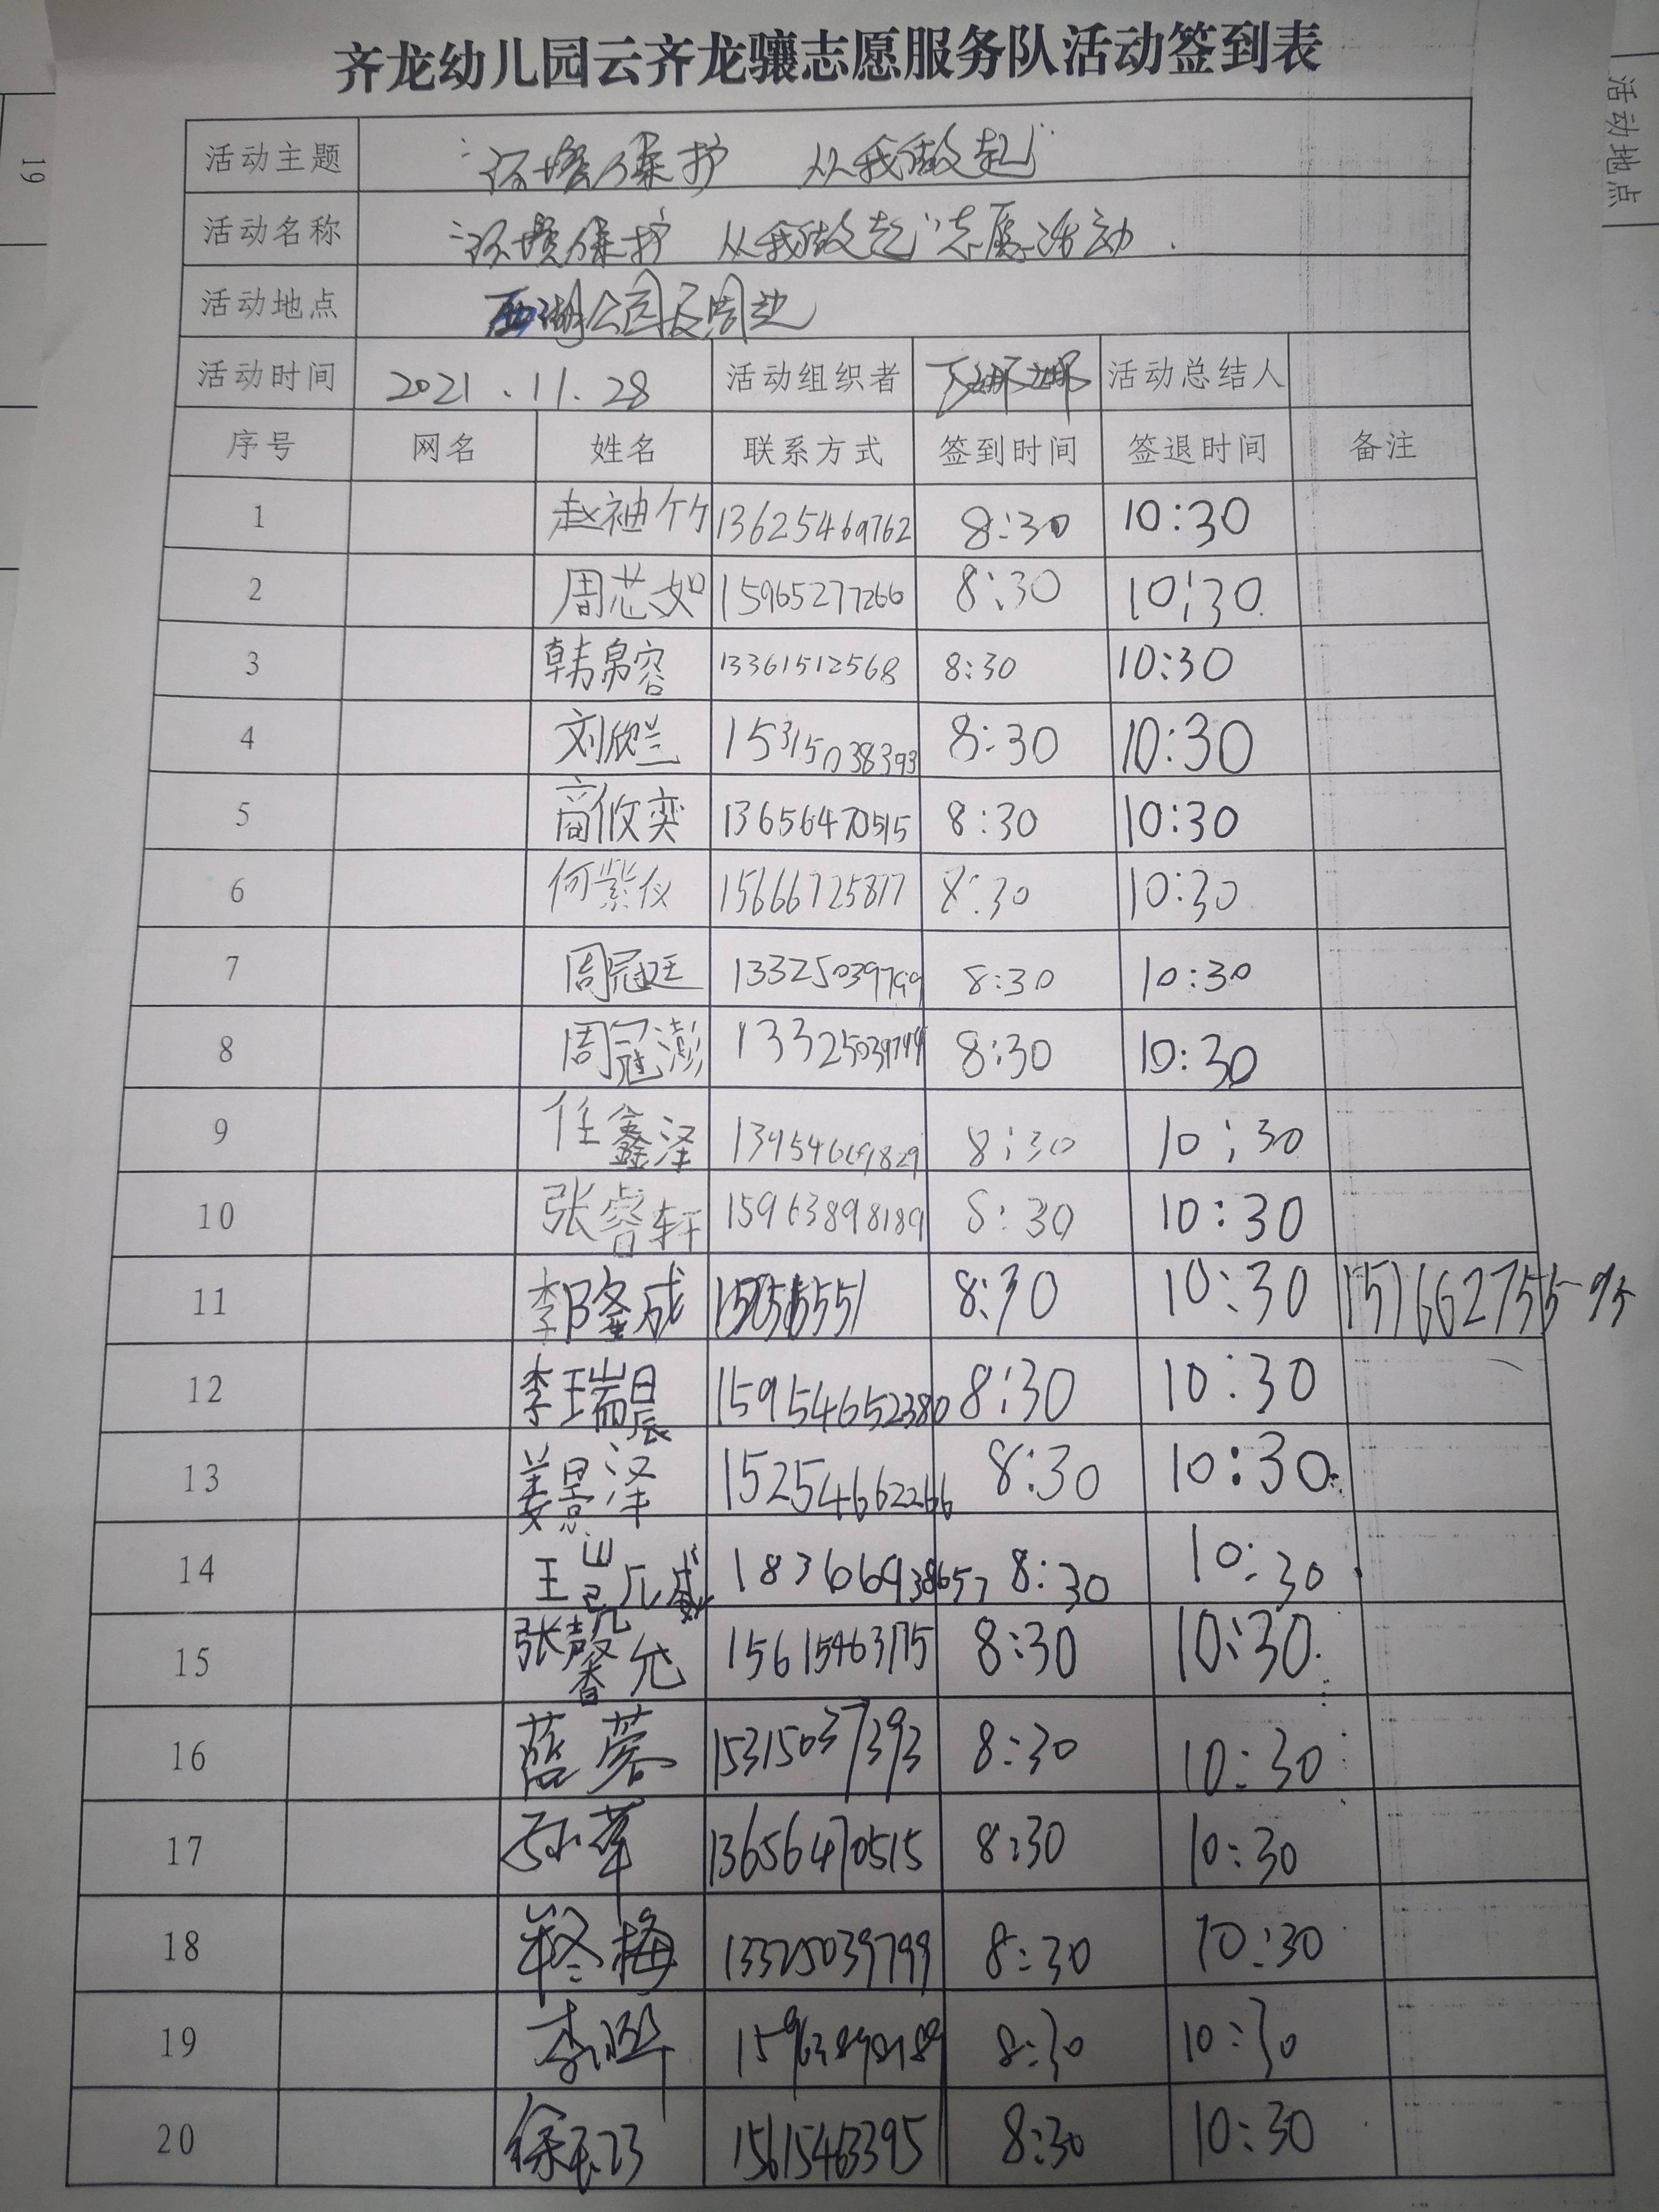 齐龙幼儿园云齐龙骧志愿服务队活动签到表
活动主题 "环境保护 从我做起"
活动名称 "环境保护 从我做起"志愿活动.
活动地点 西湖公园及周边
活动时间 2021.11.28 活动组织者 活动总结人
序号 网名 姓名 联系方式 签到时间 签退时间 备注
1 赵袖竹 13625469762 8:30 10:30
2 周芯如 15965277266 8:30 10:30
3 韩帛容 13361512568 8:30 10:30
4 刘欣兰 15315038393 8:30 10:30
5 商攸奕 13656470515 8:30 10:30
6 何紫仪 15666725877 8:30 10:30
7 周冠廷 13325039799 8:30 10:30
8 周冠澎 8:30 10:30
9 任鑫泽 13954669829 8:30 10:30
10 张睿轩 15963898189 8:30 10:30
11 李隆成 8:30 10:30
12 李瑞晨 15954652380 8:30 10:30
13 姜景泽 15254662266 8:30 10:30
14 王 8:30 10:30
15 张馨允 15615463775 8:30 10:30
16 蓝蓉 15315037393 8:30 10:30
17 孙苹 13656470515 8:30 10:30
18 梅 13325039799 8:30 10:30
19 李 15963898189 8:30 10:30
20 徐 15615463395 8:30 10:30
活动地点
19